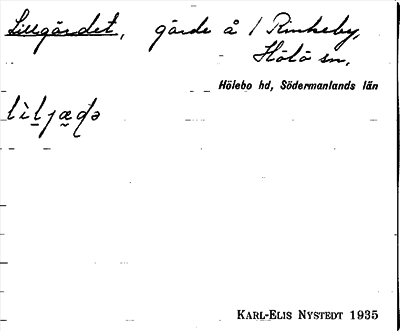 Lillgärdet, gärde å / Rinkeby,
Hölö sn.
Hölebo hd, Södermanlands län
KARL-ELIS NYSTEDT 1935